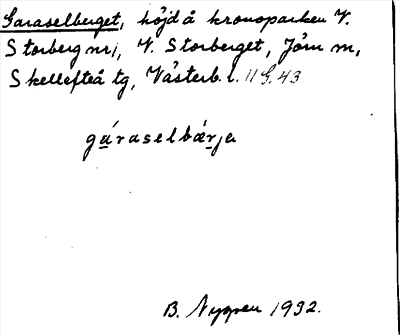 Garaselberget, höjd å kronoparken V.
Storberg nr 1, V. Storberget, Jörn m,
Skellefteå tg, Västerb. l. 11 G. 43
gáraselbǽrje
B. Nyman 1932.